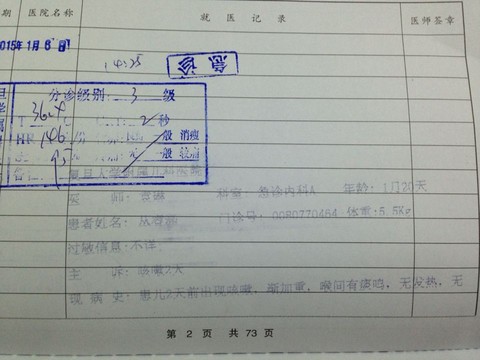 期 医院名称 就 医 记 录 医师签章
2015年1月6日
14:35
急诊
分诊级别: 3 级
T 36.4 2 秒
HR 146 一般 消瘦
一般 较差
复旦大学附属儿科医院
医 师: 科室: 急诊内科A 年龄: 1月20天
患者姓名: 门诊号: 0080770464 体重:5.5Kg
过敏信息:不详
主 诉:咳嗽2天
现 病 史:患儿2天前出现咳嗽,渐加重,喉间有痰鸣,无发热,无
第 2 页 共 73 页